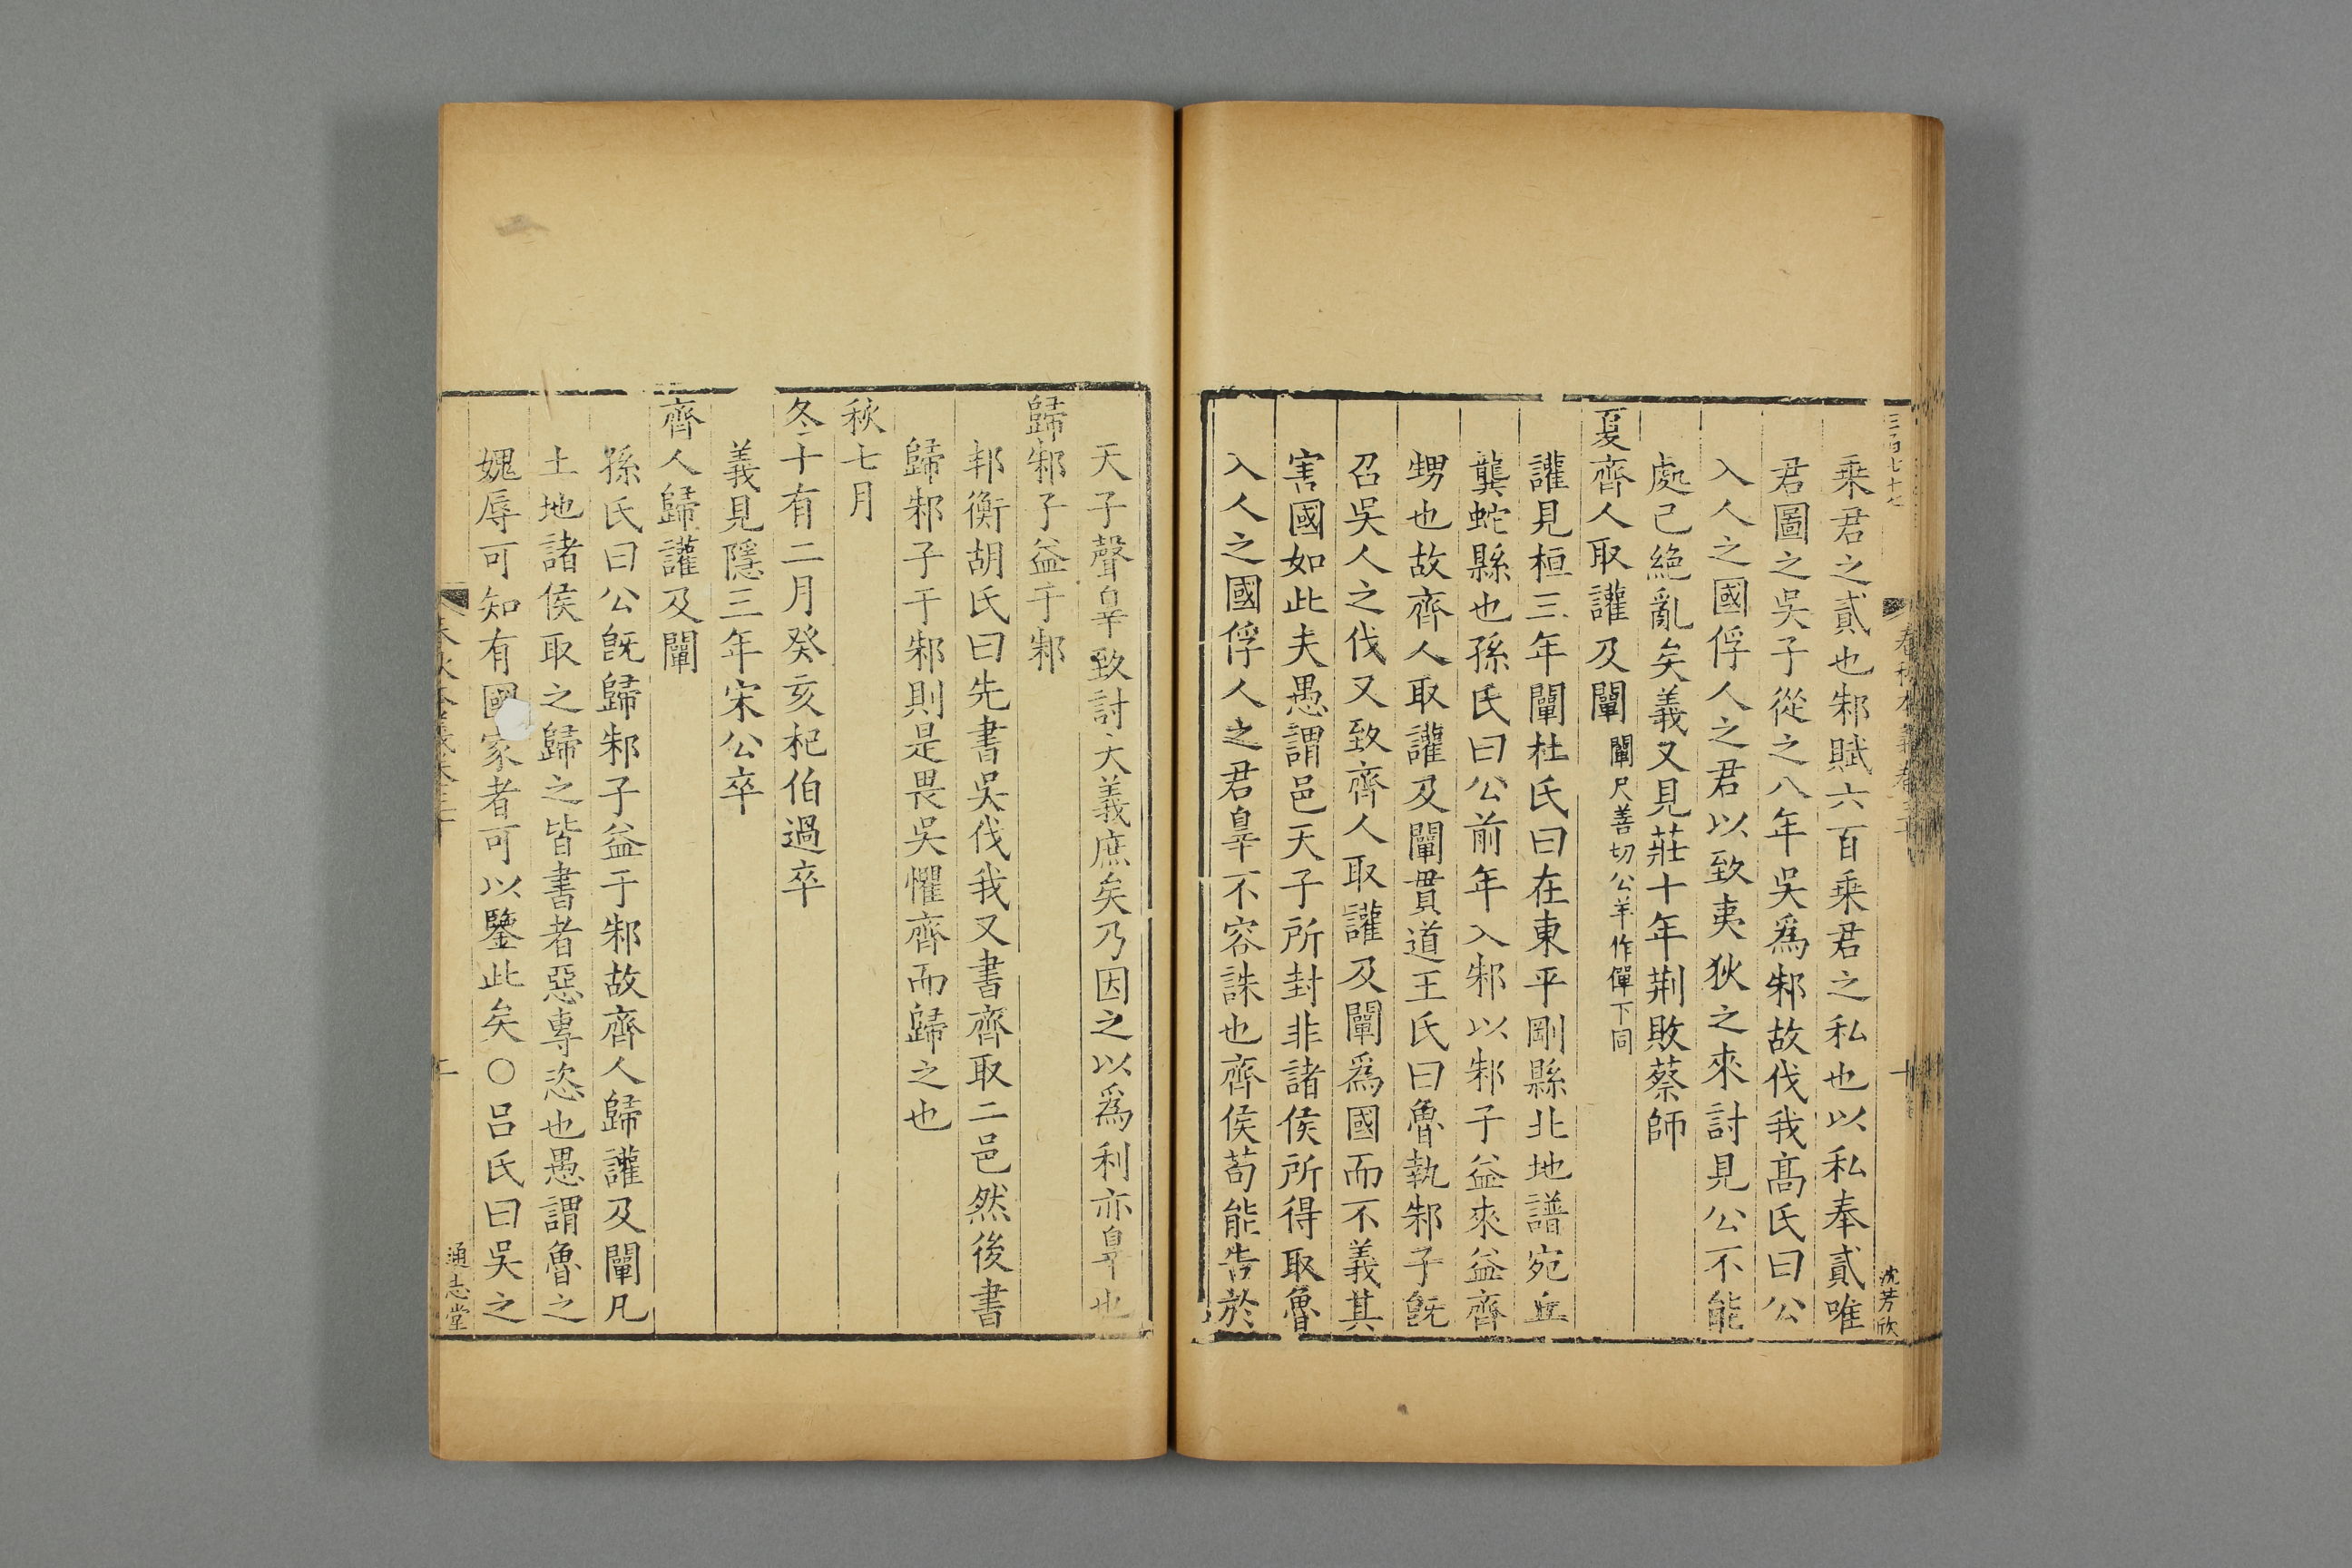 乘君之貳也邾賦六百乘君之私也以私奉貳唯
君圖之吳子從之八年吳爲邾故伐我髙氏曰公
入人之國俘人之君以致夷狄之來討見公不能
處己絶亂矣義又見莊十年荆敗蔡師
夏齊人取讙及闡闡尺善切公羊作僤下同
讙見桓三年闡杜氏曰在東平剛縣北地譜宛丘
龔蛇縣也孫氏曰公前年入邾以邾子益來益齊
甥也故齊人取讙及闡貫道王氏曰魯執邾子旣
召吳人之伐又致齊人取讙及闡爲國而不義其
害國如此夫愚謂邑天子所封非諸侯所得取魯
入人之國俘人之君辠不容誅也齊侯苟能告於
天子聲辠致討大義庶矣乃因之以爲利亦辠也
歸邾子益于邾
邦衡胡氏曰先書吳伐我又書齊取二邑然後書
歸邾子于邾則是畏吳懼齊而歸之也
秋七月
冬十有二月癸亥杞伯過卒
義見隱三年宋公卒
齊人歸讙及闡
孫氏曰公旣歸邾子益于邾故齊人歸讙及闡凡
土地諸侯取之歸之皆書者惡專恣也愚謂魯之
媿辱可知有國家者可以鑒此矣○吕氏曰吳之
通志堂
沈芳欣